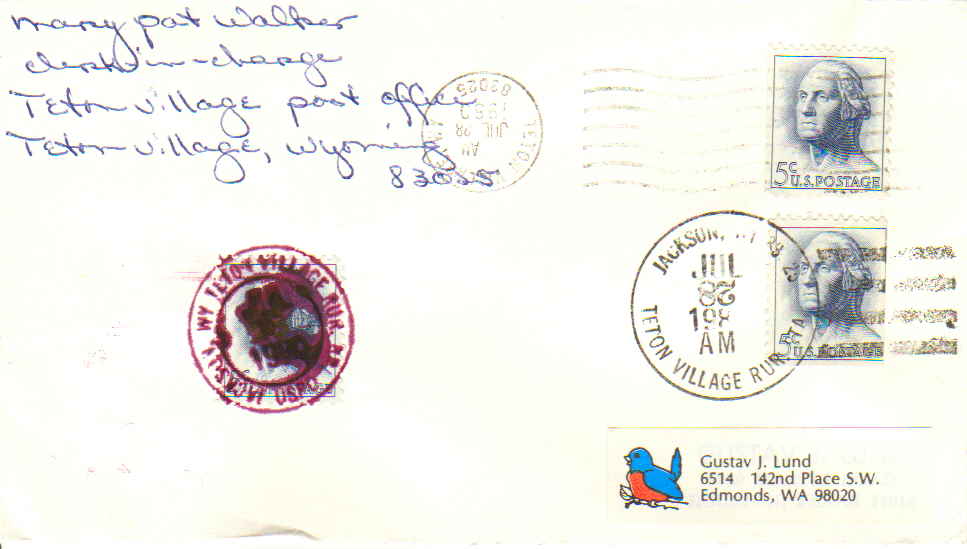 Mary Pat Walker
clerk-in-charge
Teton Village post office
Teton Village, Wyoming
83025
TETON
83025
1983
JUL 28
AM
5c
U.S.POSTAGE
JACKSON, WY
JUL
198
AM
TETON VILLAGE RUR. STA
5c
U.S.POSTAGE
TETON VILLAGE RUR.
JACKSON WY
USPO
Gustav J. Lund
6514 142nd Place S.W.
Edmonds, WA 98020